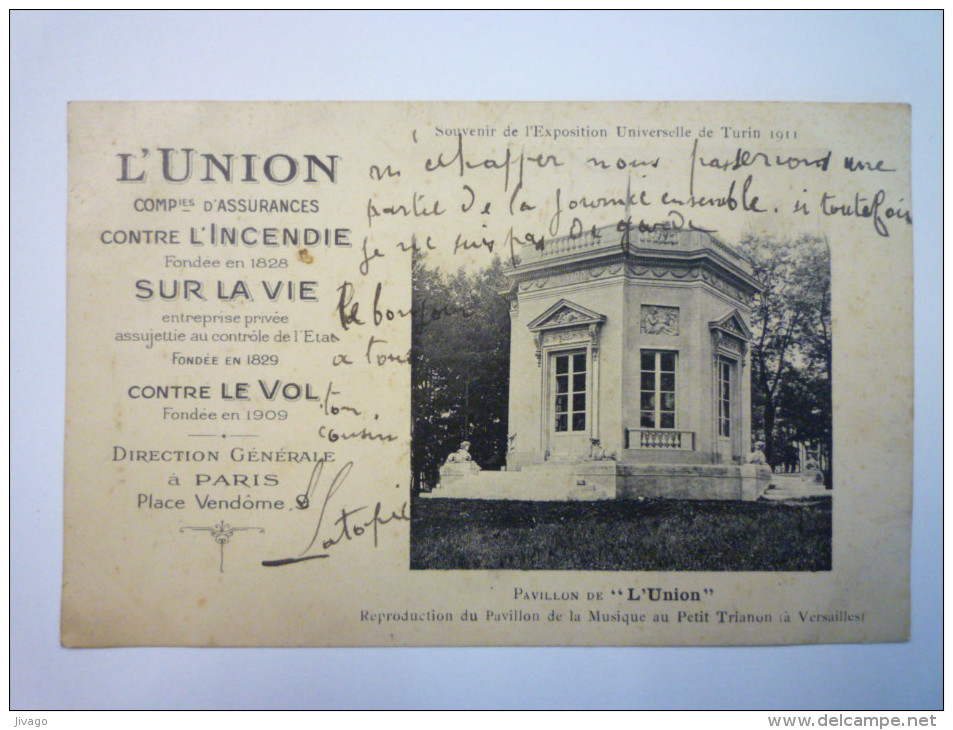 Souvenir de l'Exposition Universelle de Turin 1911
m'echapper nous passerions une
partie de la journée ensemble. si toutefois
je ne suis pas de garde
le bonjour
a tous
ton
cousin
L'UNION
COMPIES D'ASSURANCES
CONTRE L'INCENDIE
Fondée en 1828
SUR LA VIE
entreprise privée
assujettie au contrôle de l'Etat
FONDÉE EN 1829
CONTRE LE VOL
Fondée en 1909
DIRECTION GÉNÉRALE
à PARIS
Place Vendôme, 9
PAVILLON DE "L'Union"
Reproduction du Pavillon de la Musique au Petit Trianon (à Versailles)
Jivago
http://www.delcampe.net